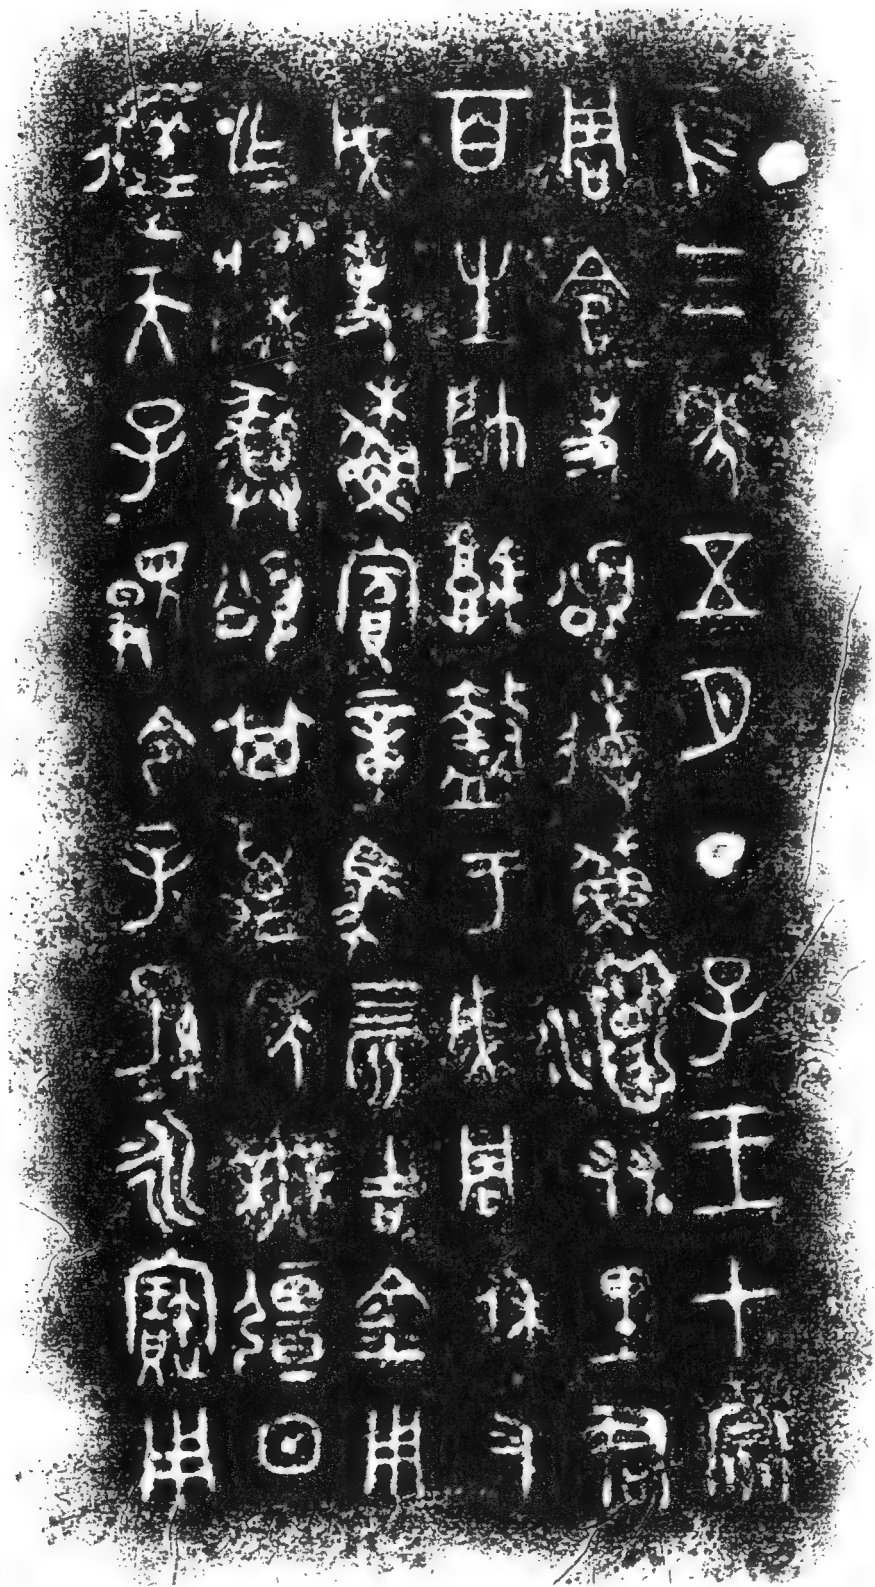 隹三年五月丁子王才宗
周令史頌省穌㵒友里君
百生帥堣盩于成周休又
成事穌賓章馬四匹吉金用
乍䵼彝頌其萬年無疆日
𨒌天子顯令子子孫孫永寶用